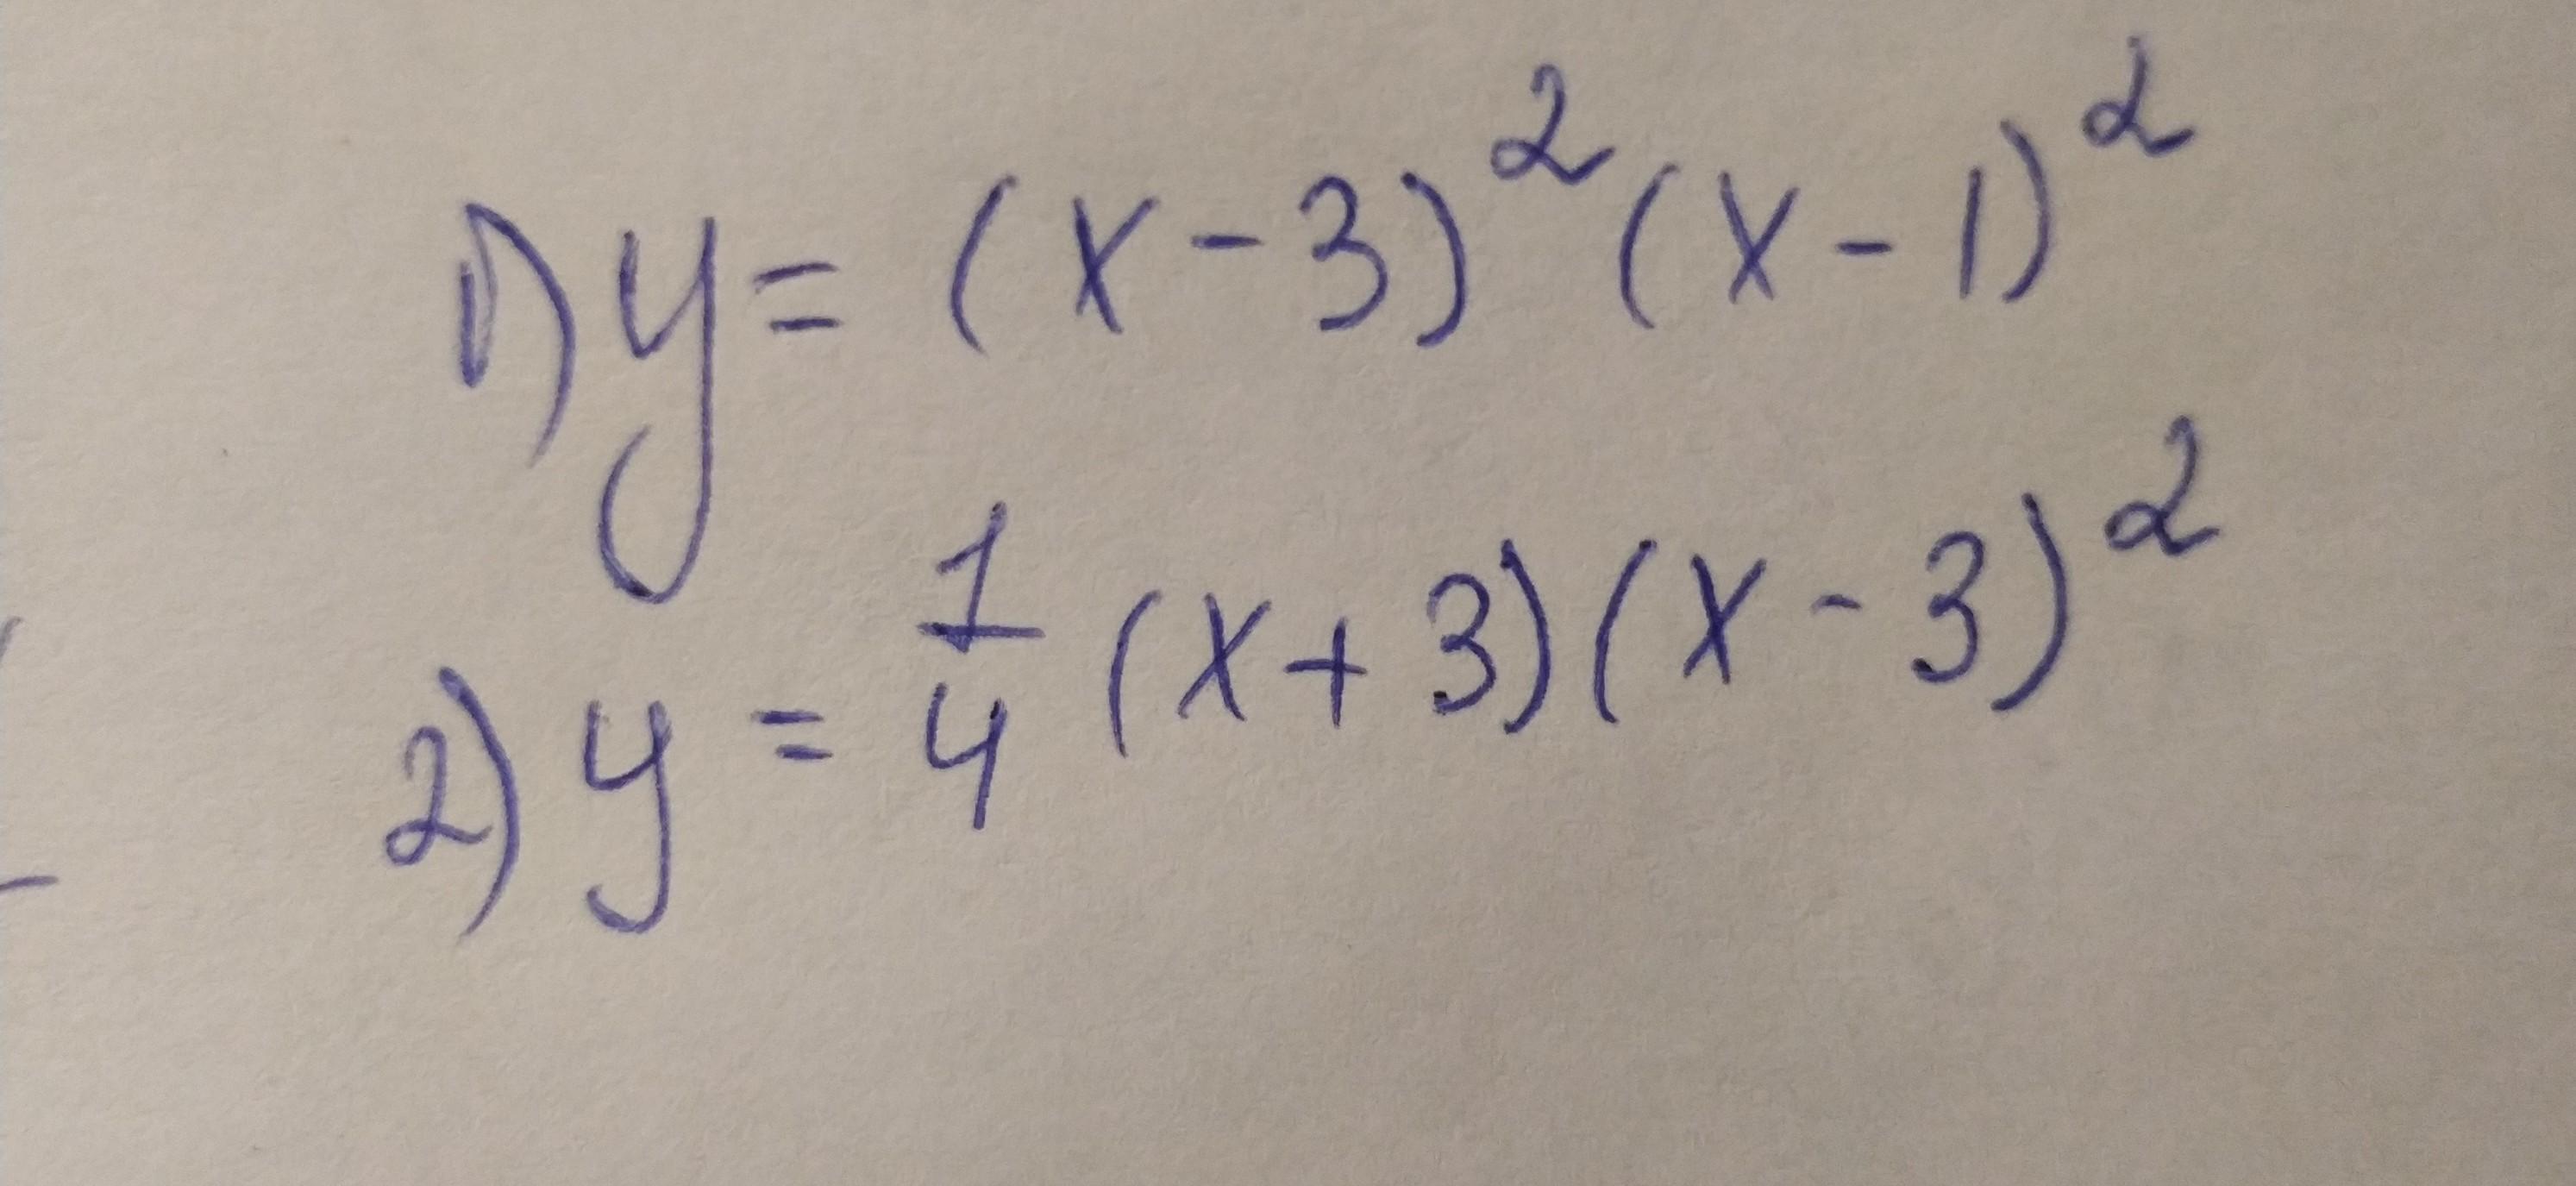 1) y = (x - 3)² (x - 1)²
2) y = 1/4 (x + 3)(x - 3)²